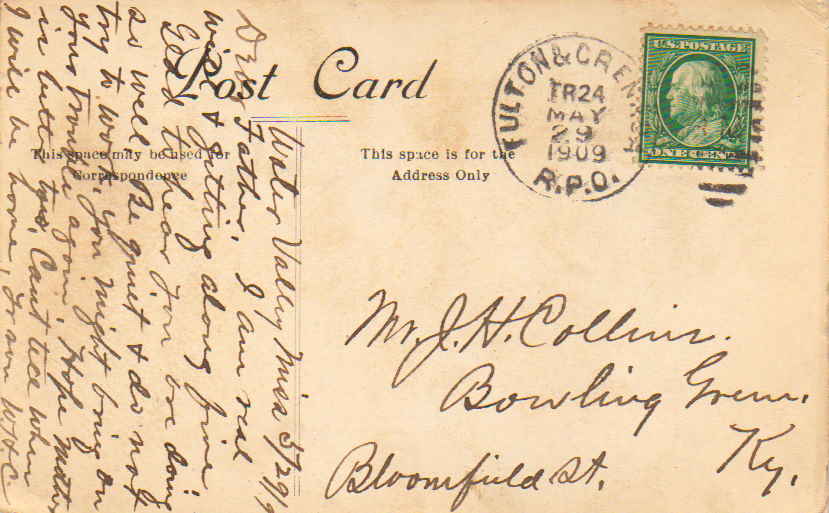 Post Card
This space may be used for
Correspondence
This space is for the
Address Only
FULTON & GREN
TR24
MAY
29
1909
R.P.O.
U.S. POSTAGE
ONE CENT
Water Valley Miss 5/29/9
Dear Father, I am real
well & getting along fine
Glad to hear you are doing
so well Be quiet & do not
try to work, you might bring on
your trouble again, Hope Mother
is better too, Can't tell when
I will be home, Yr son W.H.C.
Mr. J. H. Collins.
Bowling Green.
Ky.
Bloomfield St.